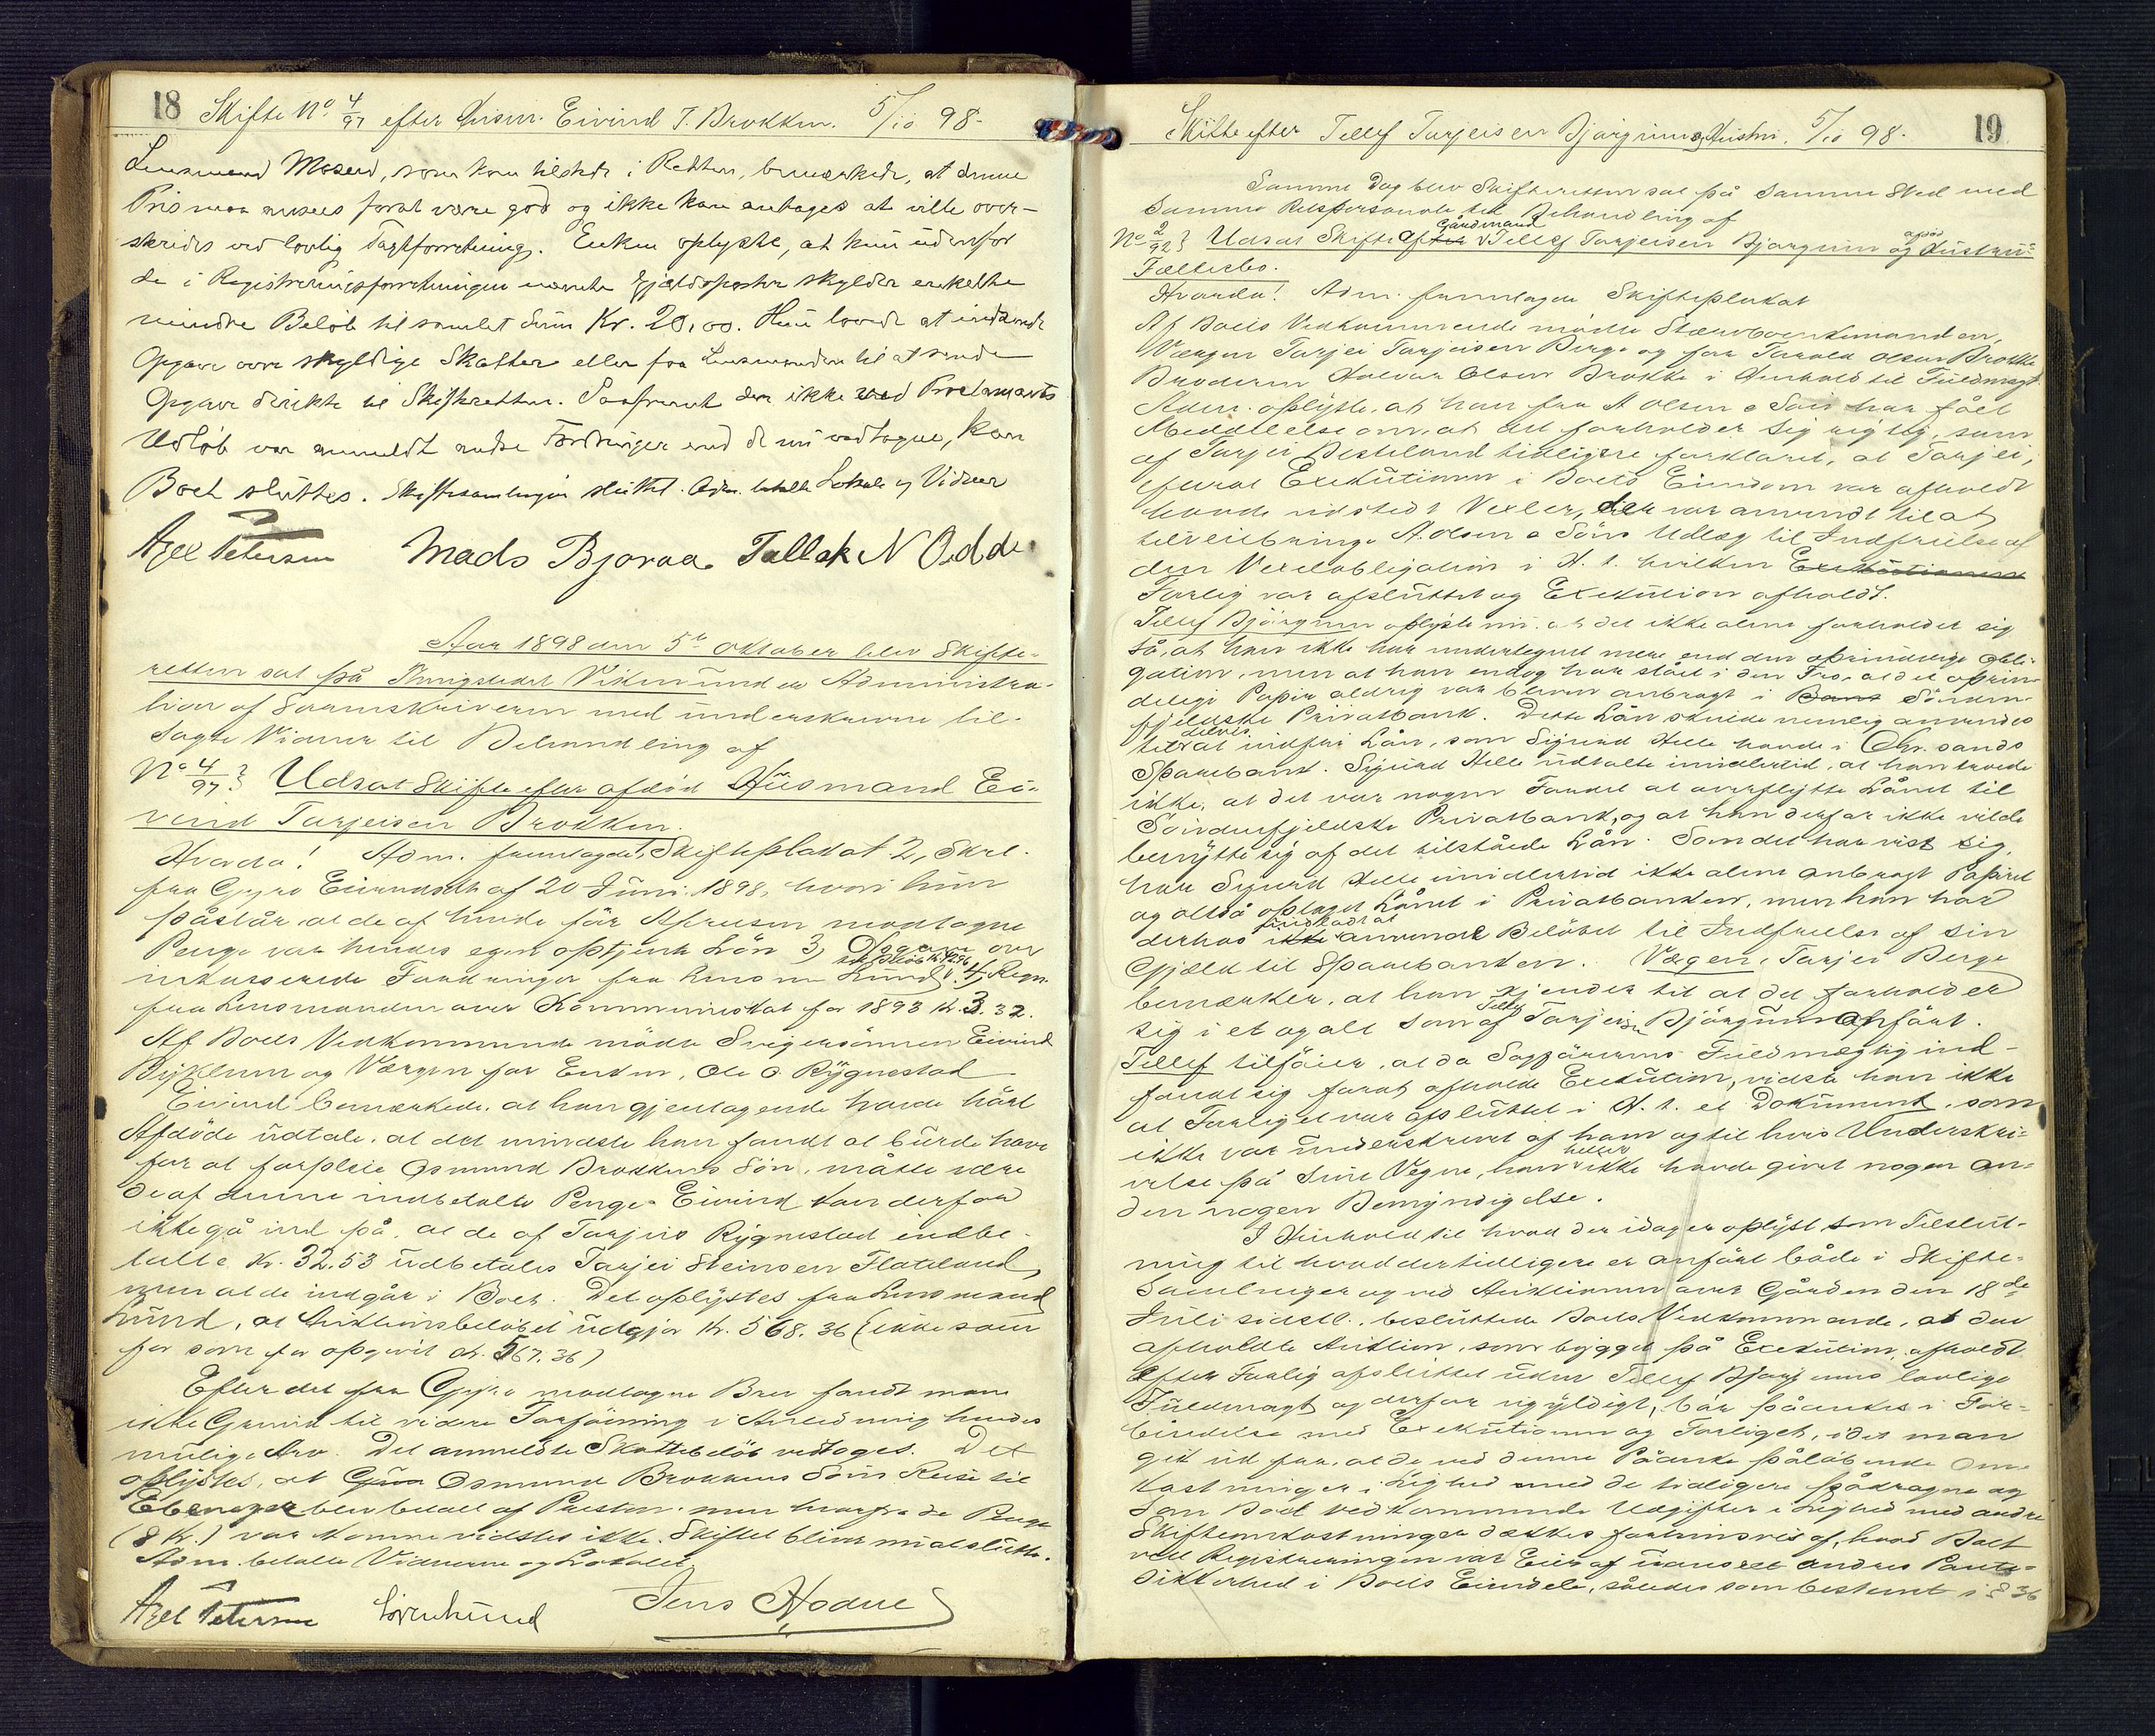 18 Skifte No. 4/97 efter Husm. Eivind T. Brokken. 5/10 98-
Lensmand Moseid, som kom tilstede i Retten, bemærkede, at denne
Pris maa ansees forat være god og ikke kan antages at ville over-
skrides ved lovlig Taxtforretning. Enken oplyste, at hun udenfor
de i Registreringsforretningen nævnte Gjældsposter skylder enkelte
mindre Beløb til samlet Sum Kr. 20,00. Hun lovede at indsende
Opgave over skyldige Skatter eller faa Lensmanden til at sende
Opgave direkte til Skifteretten. Saafremt der ikke ved Proclamaets
Udløb var anmeldt andre Fordringer end de nu vedtagne, kan
Boet sluttes. Skiftesamlingen sluttet. Adm. betalte Lokale og Vidner
Axel Petersen Mads Bjoraa. Tallak N Odde.
Aar 1898 den 5te Oktober blev Skifte-
retten sat på Thingstedet Viken under Administra-
tion af Sorenskriveren med underskrevne til-
sagte Vidner til Behandling af
No 4/97 } Udsat Skifte efter afdød Husmand Ei-
vind Tarjeisen Brokken.
Hvorda! Adm. fremlagde 1, Skifteplakat 2, Skrl.
fra Gyro Eivindsdtr af 20 Juni 1898, hvori hun
påstår, at de af hende før Afreisen modtagne
Penge var hendes egen optjente Løn 3, Opgave over
inkasserede Fordringer fra Lensm Lund 4, Regn.
fra Lensmanden over Kommuneskat for 1893 Kr. 3.32.
Af Boets Vedkommende mødte Svigersønnen Eivind
Byklum og Værgen for Enken, Ole O. Rygnestad
Eivind bemærkede, at han gjentagende havde hørt
Afdøde udtale, at det mindste han fandt at burde have
for at forpleie Osmund Brokkens Søn, måtte være
de af denne indbetalte Penge. Eivind kan derfor
ikke gå ind på, at de af Tarjeis Rygnestad indbe-
talte Kr. 32.53 udbetales Tarjei Steinsen Flateland,
men at de indgår i Boet. Det oplystes fra Lensmand
Lund, at Auktionsbeløbet udgjør Kr. 568.36 (ikke som
før som før opgivet Kr. 567.36)
Efter det fra Gyro modtagne Brev fandt man
ikke Grund til videre Forføining i Anledning hendes
mulige Arv. Det anmeldte Skattebeløb vedtoges. Det
oplystes, at Osmund Brokkens Søns Reise til
Ebenezer blev betalt af Presten. men hvorfra de Penge
(8 Kr.) var komne vidstes ikke. Skiftet bliver at slutte.
Adm. betalte Vidnerne og Lokalet.
Axel Petersen Jens Hodne
Skifte efter Tellef Tarjeisen Bjørgum og Hustru. 5/10 98. 19
Samme Dag blev Skifteretten sat på samme Sted med
samme Retspersonale til Behandling af
Gårdmand afdød
No 2/92 } Udsat Skifte efter Tellef Tarjeisen Bjørgum og Hustru
Fællesbo.
Hvorda! Adm. fremlagde Skifteplakat
Af Boets Vedkommende mødte Stærvboenkemanden,
Værgen Tarjei Tarjeisen Berge og for Torold Olsen Brokke
Broderen Halvor Olsen Brokke i Henhold til Fuldmagt.
Adm. oplyste, at han fra A Olsen & Søn har fået
Meddelelse om, at det forholder sig rigtig, som
af Tarjei Besteland tidligere forklaret, at Tarjei,
efterat Exekutionen i Boets Eiendom var afholdt
havde udstedt Vexler, der var anvendt til at
tilveiebringe A. Olsen & Søns Udlæg til Indfrielse af
den Vexelobligation i H. t. hvilken Exekutionen
Forlig var afsluttet og Exekution afholdt.
Tellef Bjørgum oplyste nu, at det ikke alene forholder sig
så, at han ikke har undertegnet mere end den oprindelige Obli-
gation, men at han endog har stået i den Tro, at det oprin-
delige Papir aldrig var bleven anbragt i Bank Sønden-
fjeldske Privatbank. Dette Lån skulde nemlig anvendes
delvis
til at indfri Lån, som Sigurd Helle havde i Chr.sands
Sparebank. Sigurd Helle udtalte imidlertid, at han troede
ikke, at det var nogen Fordel at overflytte Lånet til
Søndenfjeldske Privatbank, og at han derfor ikke vilde
benytte sig af det tilståede Lån. Som det har vist sig,
har Sigurd Helle imidlertid ikke alene anbragt Papiret
og altså optaget Lånet i Privatbanken, men han har
undladt at
derhos ikke anvende Beløbet til Indfrielse af sin
Gjæld til Sparebanken. Værgen, Tarjei Berge
bemærker, at han kjender til at det forholder
Tellef
sig i et og alt som af Tarjeisen Bjørgum anført.
Tellef tilføier, at da Sagførerens Fuldmægtig ind-
fandt sig forat afholde Exekution, vidste han ikke
at Forliget var afsluttet i H. t. et Dokument, som
ikke var underskrevet af ham og til hvis Underskri-
heller
velse på sine Vegne, han ikke havde givet nogen an-
den nogen Bemyndigelse.
I Henhold til hvad der idag er oplyst som Tilslut-
ning til hvad der tidligere er anført både i Skifte-
samlinger og ved Auktionen over Gården den 18de
Juli sidstl., besluttede Boets Vedkommende, at den
afholdte Auktion, som bygget på Exekution, afholdt
efter Forlig afsluttet uden Tellef Bjørgums lovlige
Fuldmagt og derfor ugyldigt, bør påankes i For-
bindelse med Exekutionen og Forliget, idet man
gik ud fra, at de ved denne Påanke påløbende Om-
kostninger i Lighed med de tidligere pådragne og
som Boet vedkommende Udgifter i Lighed med andre
Skifteomkostninger dækkes fortrinsvis af, hvad Boet
ved Registreringen var Eier af uanseet andres Pante-
sikkerhed i Boets Eiendele, således som bestemt i § 36